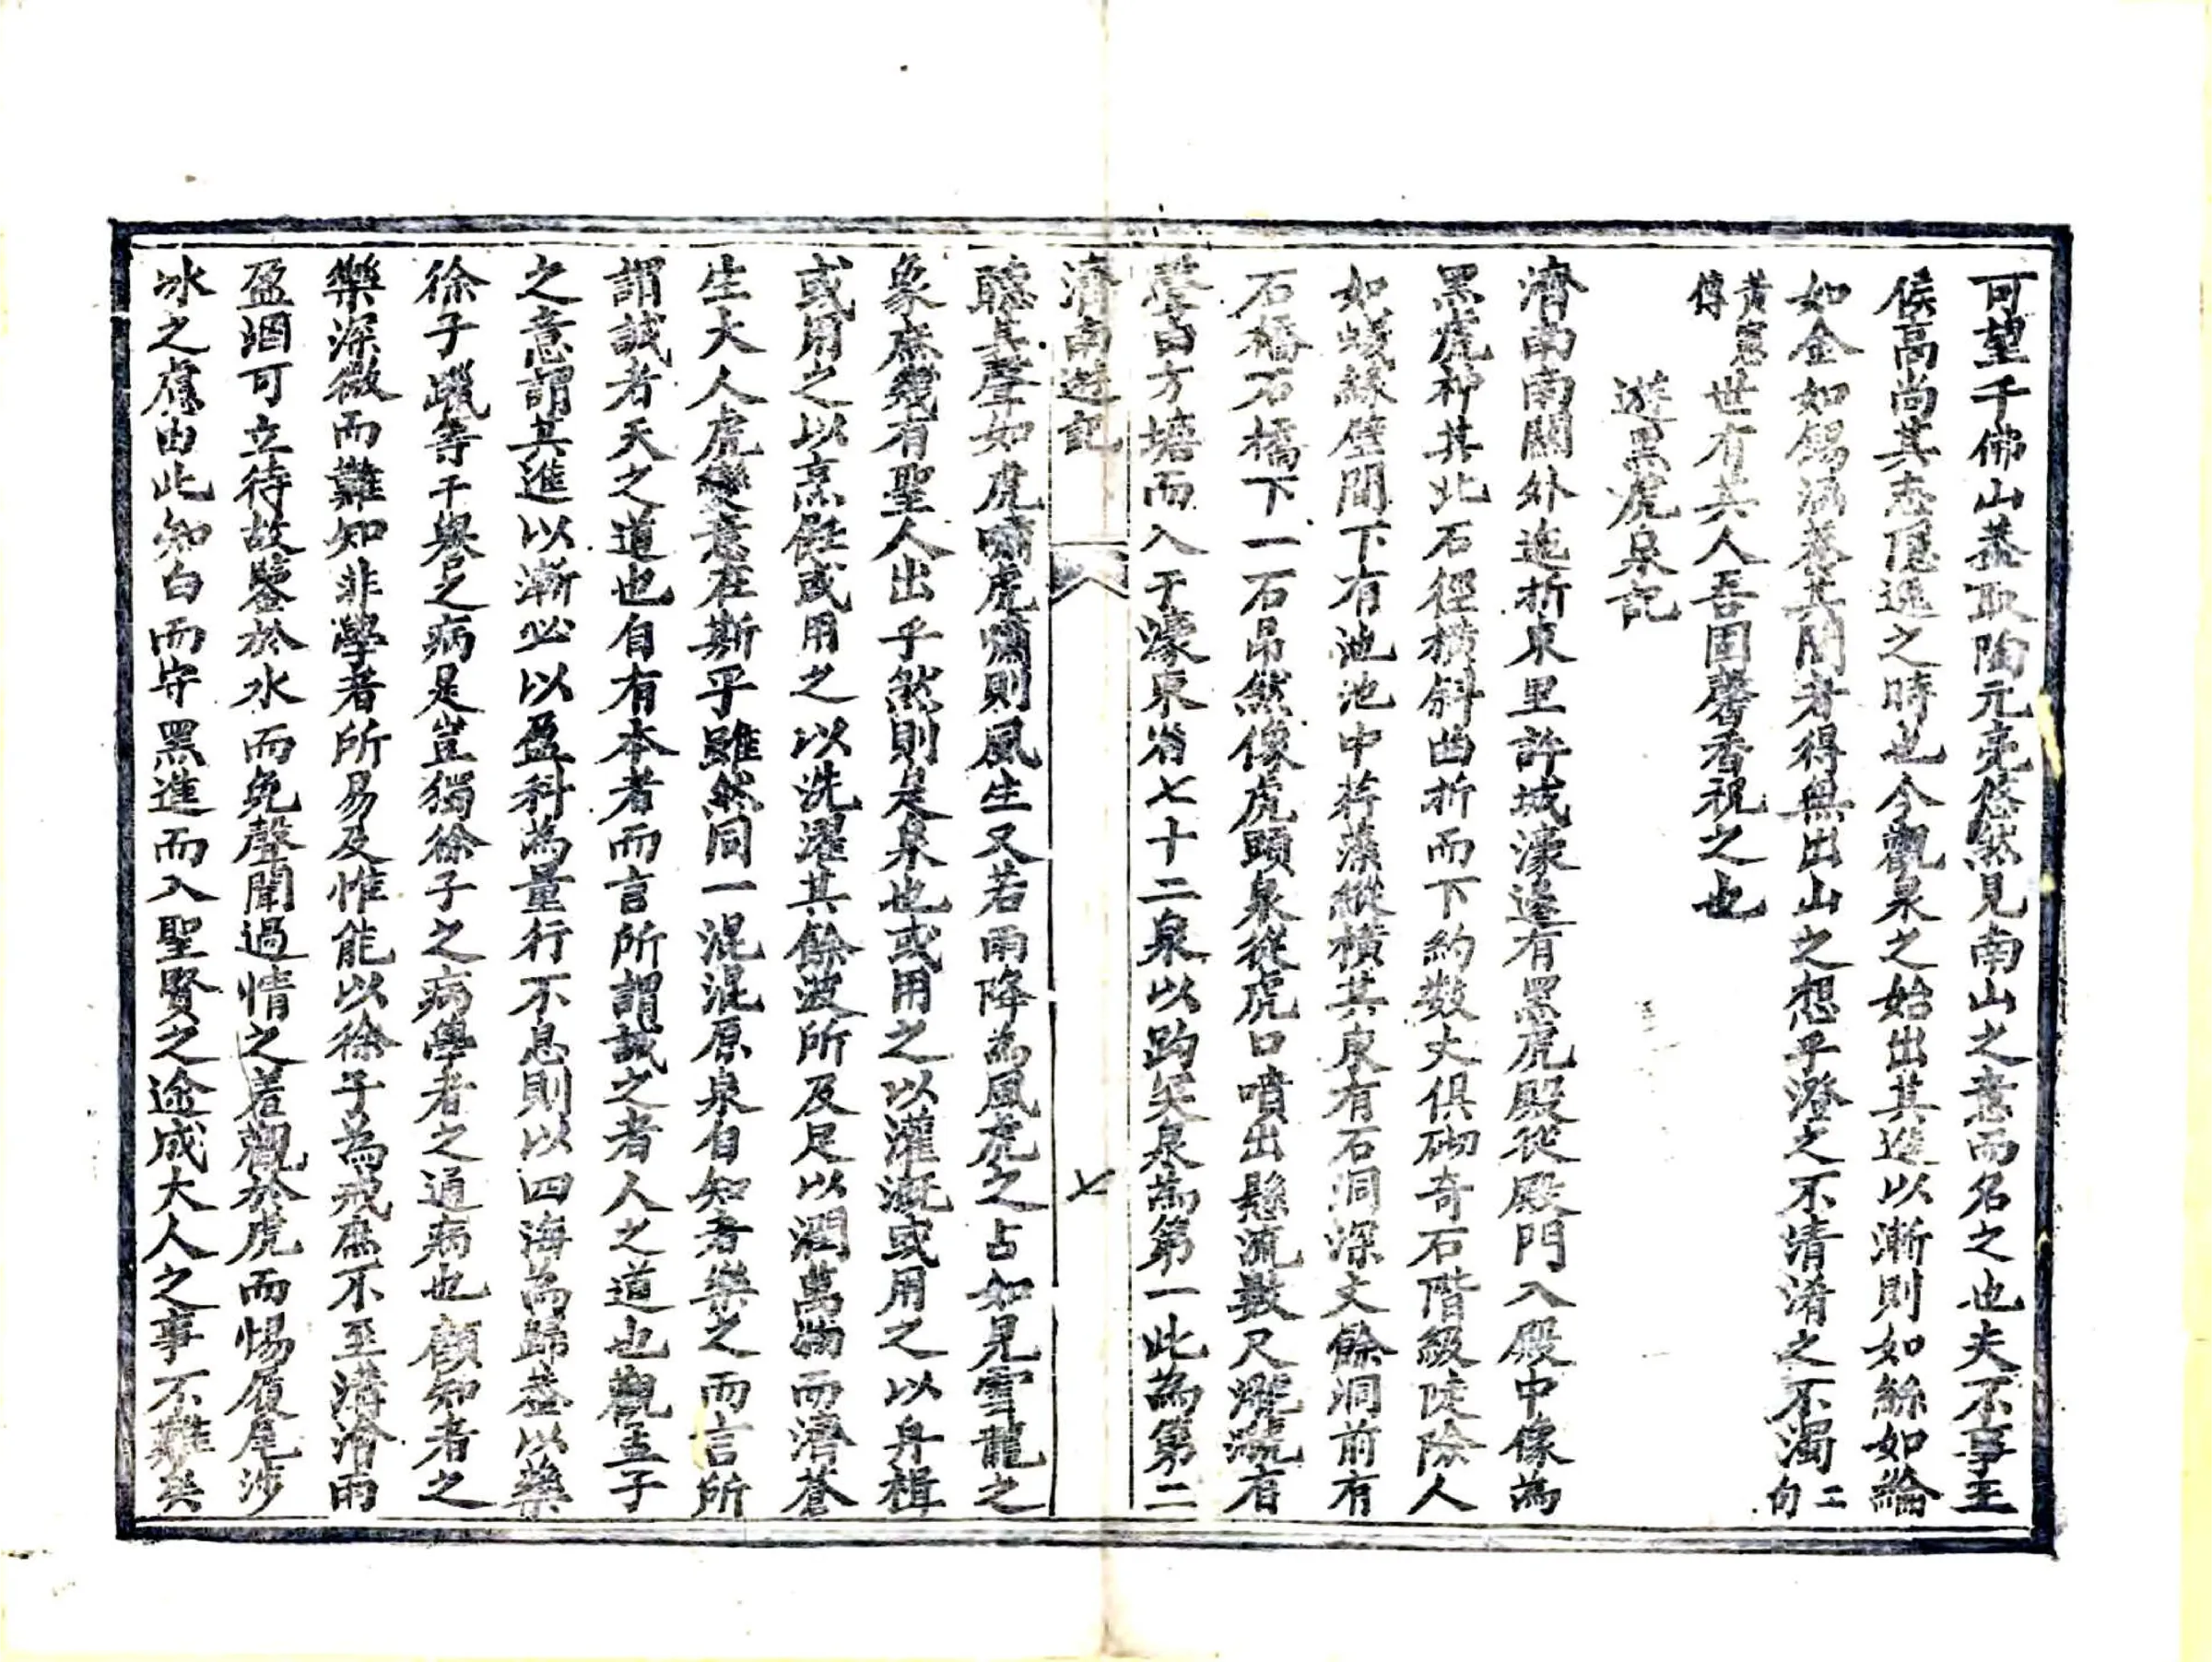 可望千佛山蓋取陶元亮悠然見南山之意而名之也夫不事王
侯高尚其志隱逸之時也今觀泉之始出其進以漸則如絲如綸
如金如錫涵養其間者得無出山之想乎澄之不清淆之不濁二句
黃憲傳世有其人吾固馨香視之也
遊黑虎泉記
濟南南關外迤折東里許城濠邊有黑虎殿從殿門入殿中像為
黑虎神其北石徑橫斜曲折而下約数丈俱砌奇石階級陡險人
如蟻緣壁間下有池池中荇藻縱橫其東有石洞深丈餘洞前有
石橋石橋下一石昂然像虎頭泉從虎口噴出懸流數尺瀧瀧有
聲由方塘而入于濠東省七十二泉以趵突泉為第一此為第二
濟南遊記 七
聽其聲如虎嘯虎嘯則風生又若雨降為風虎之占如見雲龍之
象庶幾有聖人出乎然則是泉也或用之以灌溉或用之以舟楫
或用之以烹飪或用之以洗濯其餘波所及足以潤萬物而濟蒼
生大人虎變意在斯乎雖然同一混混原泉自知者樂之而言所
謂誠者天之道也自有本者而言所謂誠之者人之道也觀孟子
之意謂其進以漸必以盈科為量行不息則以四海為歸蓋以藥
徐子躐等干譽之病是豈獨徐子之病學者之通病也顧知者之
樂深微而難知非學者所易及惟能以徐子為戒庶不至溝澮雨
盈涸可立待故鑒於水而免聲聞過情之羞觀於虎而惕履尾涉
冰之慮由此知白而守黑進而入聖賢之途成大人之事不難矣